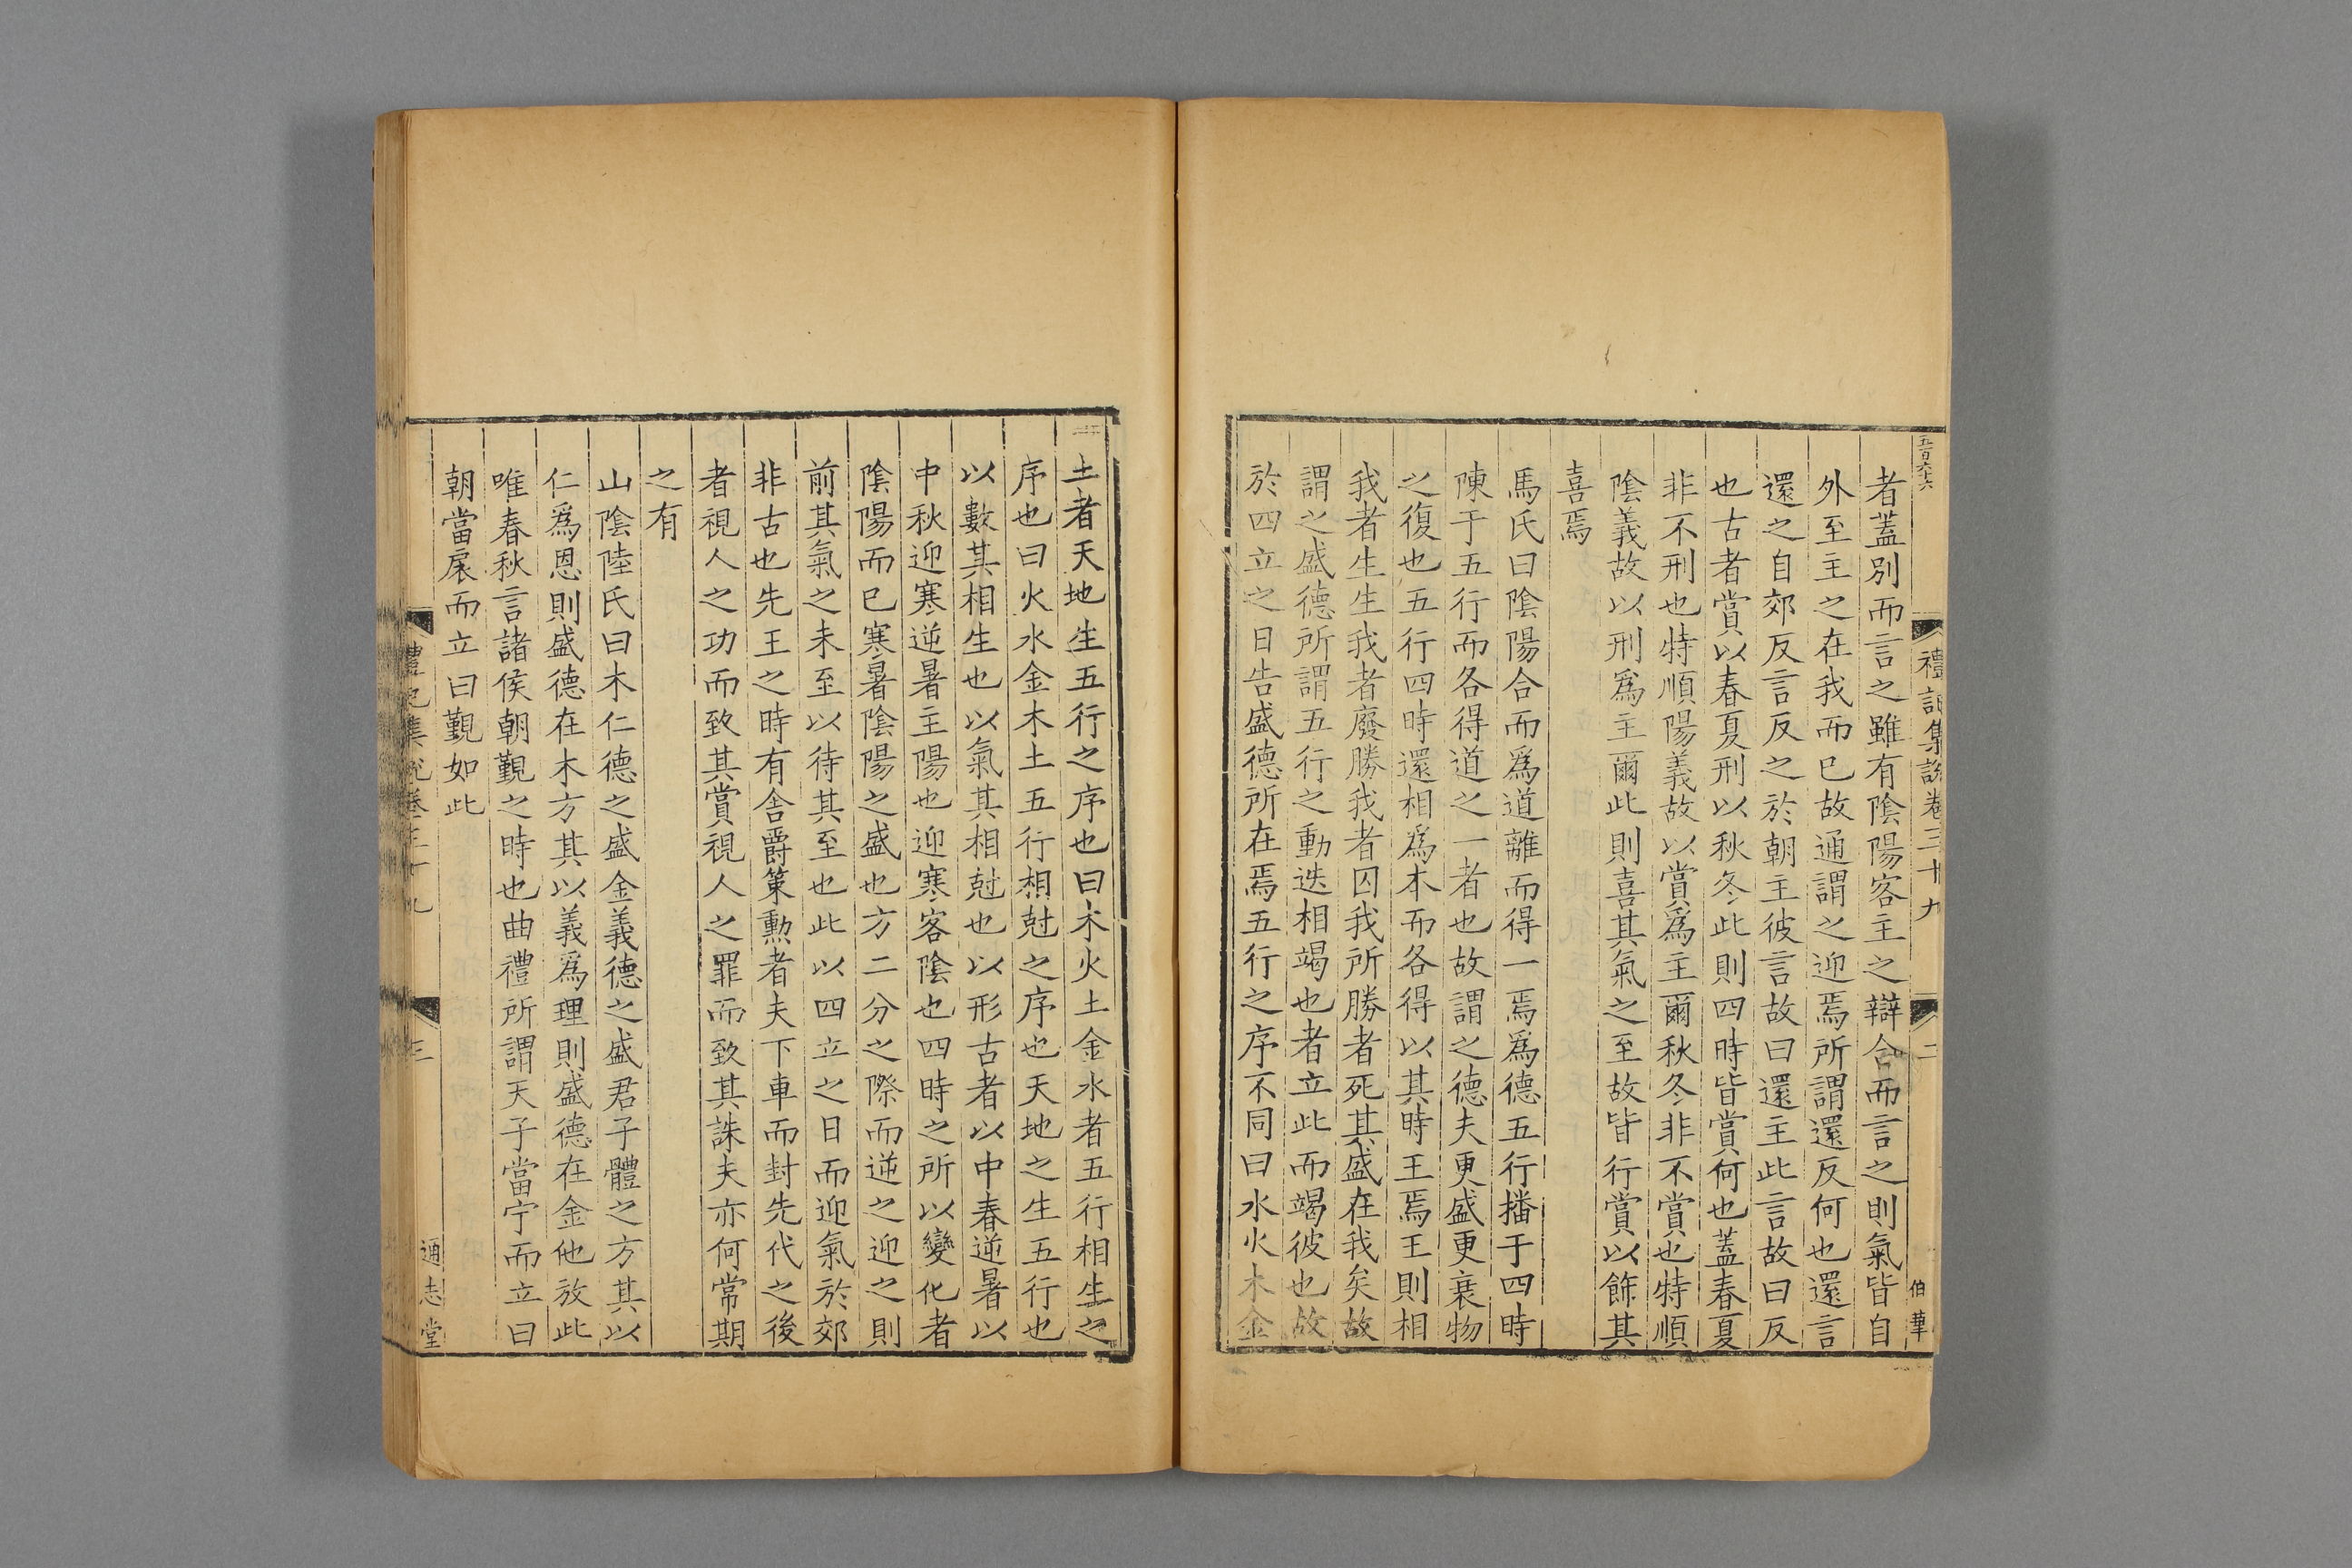 五百六十六
禮記集說卷三十九
二
伯華
者蓋別而言之雖有陰陽客主之辯合而言之則氣皆自
外至主之在我而已故通謂之迎焉所謂還反何也還言
還之自郊反言反之於朝主彼言故曰還主此言故曰反
也古者賞以春夏刑以秋冬此則四時皆賞何也蓋春夏
非不刑也特順陽義故以賞爲主爾秋冬非不賞也特順
陰義故以刑爲主爾此則喜其氣之至故皆行賞以飾其
喜焉
馬氏曰陰陽合而爲道離而得一焉爲德五行播于四時
陳于五行而各得道之一者也故謂之德夫更盛更衰物
之復也五行四時還相爲本而各得以其時王焉王則相
我者生生我者廢勝我者囚我所勝者死其盛在我矣故
謂之盛德所謂五行之動迭相竭也者立此而竭彼也故
於四立之日告盛德所在焉五行之序不同曰水火木金
土者天地生五行之序也曰木火土金水者五行相生之
序也曰火水金木土五行相尅之序也天地之生五行也
以數其相生也以氣其相尅也以形古者以中春逆暑以
中秋迎寒逆暑主陽也迎寒客陰也四時之所以變化者
陰陽而已寒暑陰陽之盛也方二分之際而逆之迎之則
前其氣之未至以待其至也此以四立之日而迎氣於郊
非古也先王之時有舍爵策勳者夫下車而封先代之後
者視人之功而致其賞視人之罪而致其誅夫亦何常期
之有
山陰陸氏曰木仁德之盛金義德之盛君子體之方其以
仁爲恩則盛德在木方其以義爲理則盛德在金他放此
唯春秋言諸侯朝覲之時也曲禮所謂天子當宁而立曰
朝當扆而立曰覲如此
禮記集說卷三十九
三
通志堂